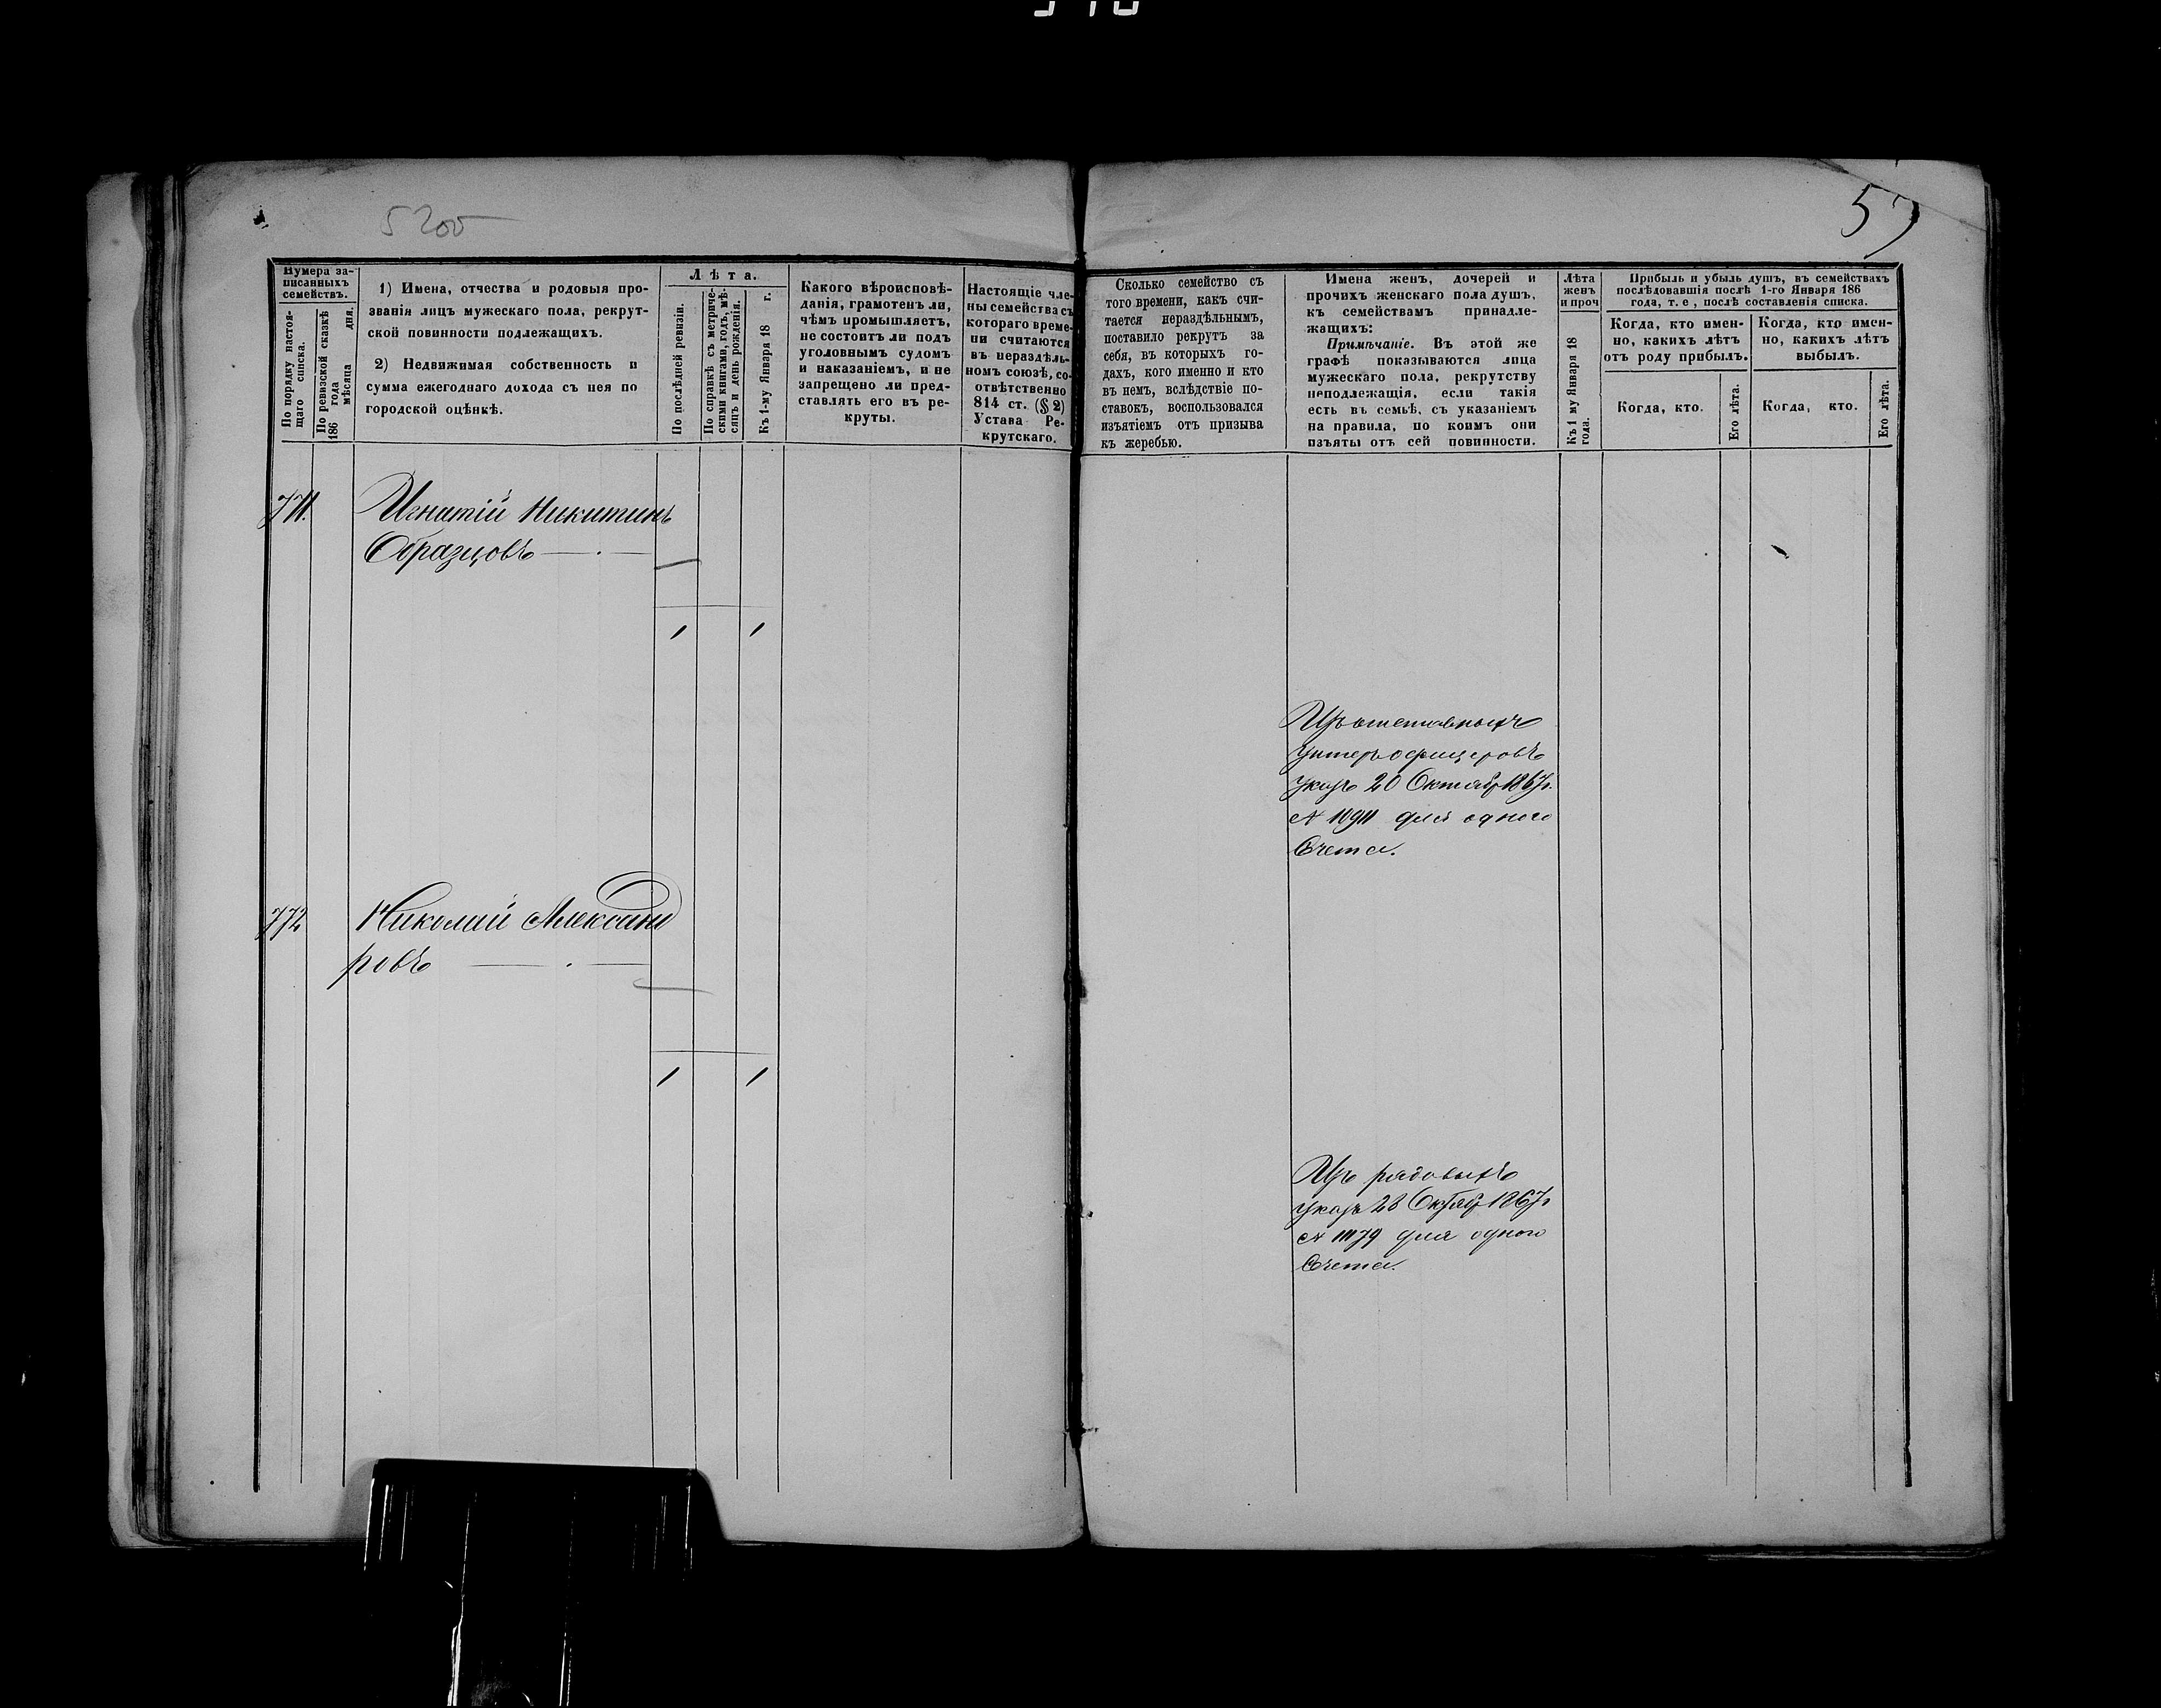 5200
57
Нумера за-
писанныхъ
семействъ.
По порядку настоя-
щаго списка.
По ревизской сказкѣ
186 года
мѣсяца дня.
1) Имена, отчества и родовыя про-
званія лицъ мужескаго пола, рекрут-
ской повинности подлежащихъ.
2) Недвижимая собственность и
сумма ежегоднаго дохода съ нея по
городской оцѣнкѣ.
Лѣта.
По послѣдней ревизіи.
По справкѣ съ метриче-
скими книгами, годъ, мѣ-
сяцъ и день рожденія.
Къ 1-му Января 18 г.
Какого вѣроисповѣ-
данія, грамотенъ ли,
чѣмъ промышляетъ,
не состоитъ ли подъ
уголовнымъ судомъ
и наказаніемъ, и не
запрещено ли пред-
ставлять его въ ре-
круты.
Настоящіе чле-
ны семейства съ
котораго време-
ни считаются
въ нераздѣль-
номъ союзѣ, со-
отвѣтственно
814 ст. (§ 2)
Устава Ре-
крутскаго.
Сколько семейство съ
того времени, какъ счи-
тается нераздѣльнымъ,
поставило рекрутъ за
себя, въ которыхъ го-
дахъ, кого именно и кто
въ немъ, вслѣдствіе по-
ставокъ, воспользовался
изъятіемъ отъ призыва
къ жеребью.
Имена женъ, дочерей и
прочихъ женскаго пола душъ,
къ семействамъ принадле-
жащихъ:
Примѣчаніе. Въ этой же
графѣ показываются лица
мужескаго пола, рекрутству
неподлежащія, если такія
есть въ семьѣ, съ указаніемъ
на правила, по коимъ они
изъяты отъ сей повинности.
Лѣта
женъ
и проч
Къ 1 му Января 18
года.
Прибыль и убыль душъ, въ семействахъ
послѣдовавшія послѣ 1-го Января 186
года, т. е , послѣ составленія списка.
Когда, кто имен-
но, какихъ лѣтъ
отъ роду прибылъ.
Когда, кто имен-
но, какихъ лѣтъ
выбылъ.
Когда, кто.
Его лѣта.
Когда, кто.
Его лѣта.
771. Игнатій Никитинъ
Образцовъ
1 1
Изъ отставныхъ
унтеръ офицеровъ
указъ 20 Октябр 1867г.
№ 10911 для одного
Счета.
772 Николай Александ
ровъ
1 1
Изъ рядовыхъ
указъ 28 Октябр 1867г
№ 11179 для одного
Счета.